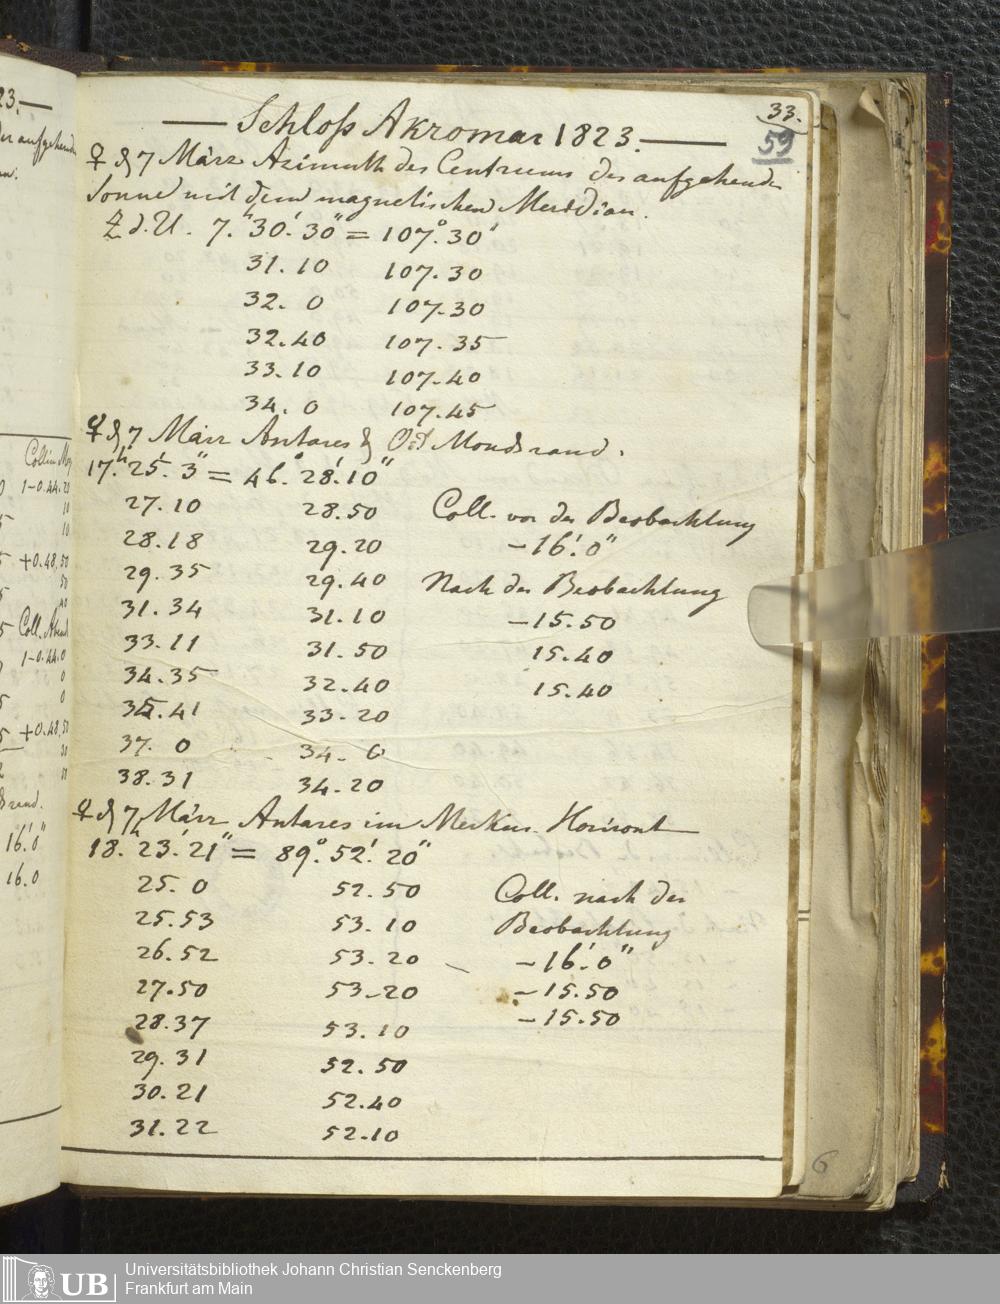 33.
59
Schloss Akromar 1823.
♀ d 7 März Azimuth des Centrums der aufgehenden
Sonne mit dem magnetischen Meridian.
Z. d. U. 7.h 30.' 30" = 107.° 30'
31. 10 107. 30
32. 0 107. 30
32. 40 107. 35
33. 10 107. 40
34. 0 107. 45
♀ d 7 März Antares & Ost Mondsrand.
17.h 25.' 3" = 46.° 28.' 10"
27. 10 28. 50 Coll. vor der Beobachtung
28. 18 29. 20 - 16.' 0"
29. 35 29. 40 Nach der Beobachtung
31. 34 31. 10 - 15. 50
33. 11 31. 50 15. 40
34. 35 32. 40 15. 40
35. 41 33. 20
37. 0 34. 0
38. 31 34. 20
♀ d 7 März Antares im Merkur. Horizont
18.h 23.' 21" = 89.° 52.' 20"
25. 0 52. 50 Coll. nach der
25. 53 53. 10 Beobachtung
26. 52 53. 20 - 16.' 0"
27. 50 53. 20 - 15. 50
28. 37 53. 10 - 15. 50
29. 31 52. 50
30. 21 52. 40
31. 22 52. 10
6
23.
der aufgehenden
Collim
1-0.44.20
10
10
+0.48.50
50
40
Coll.
1-0.44.0
0
0
+0.48.50
50
50
16.' 0"
16. 0
UB Universitätsbibliothek Johann Christian Senckenberg
Frankfurt am Main